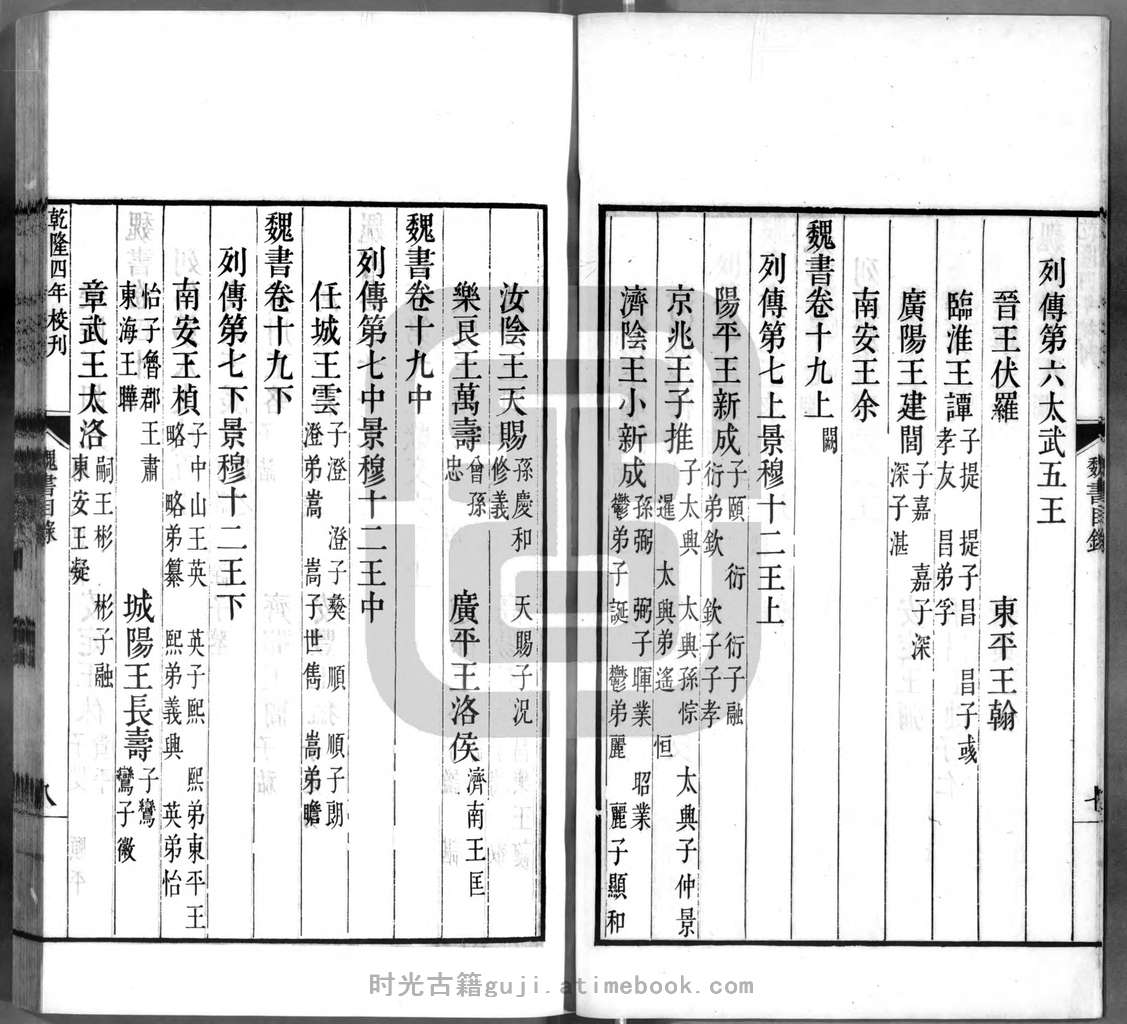 列傳第六太武五王
晉王伏羅　東平王翰
臨淮王譚　子提　提子昌　昌子彧
孝友　昌弟孚
廣陽王建閭　子嘉　嘉子深
深子湛
南安王余
魏書卷十九上　闕
列傳第七上景穆十二王上
陽平王新成　子頤　衍　衍子融
衍弟欽　欽子子孝
京兆王子推　子太興　太興孫悰　太興子仲景
暹　太興弟遙　恒
濟陰王小新成　孫弼　弼子暉業　昭業
鬱弟子誕　鬱弟麗　麗子顯和
魏書目錄
汝陰王天賜　孫慶和　天賜子況
修義
樂良王萬壽　曾孫
忠　廣平王洛侯　濟南王匡
魏書卷十九中
列傳第七中景穆十二王中
任城王雲　子澄　澄子彝　順　順子朗
澄弟嵩　嵩子世雋　嵩弟贍
魏書卷十九下
列傳第七下景穆十二王下
南安王楨　子中山王英　英子熙　熙弟東平王
略　略弟纂　熙弟義興　英弟怡
怡子魯郡王肅
東海王曄　城陽王長壽　子鸞
鸞子徽
章武王太洛　嗣王彬　彬子融
東安王凝
乾隆四年校刊
魏書目錄
八
时光古籍guji.atimebook.com